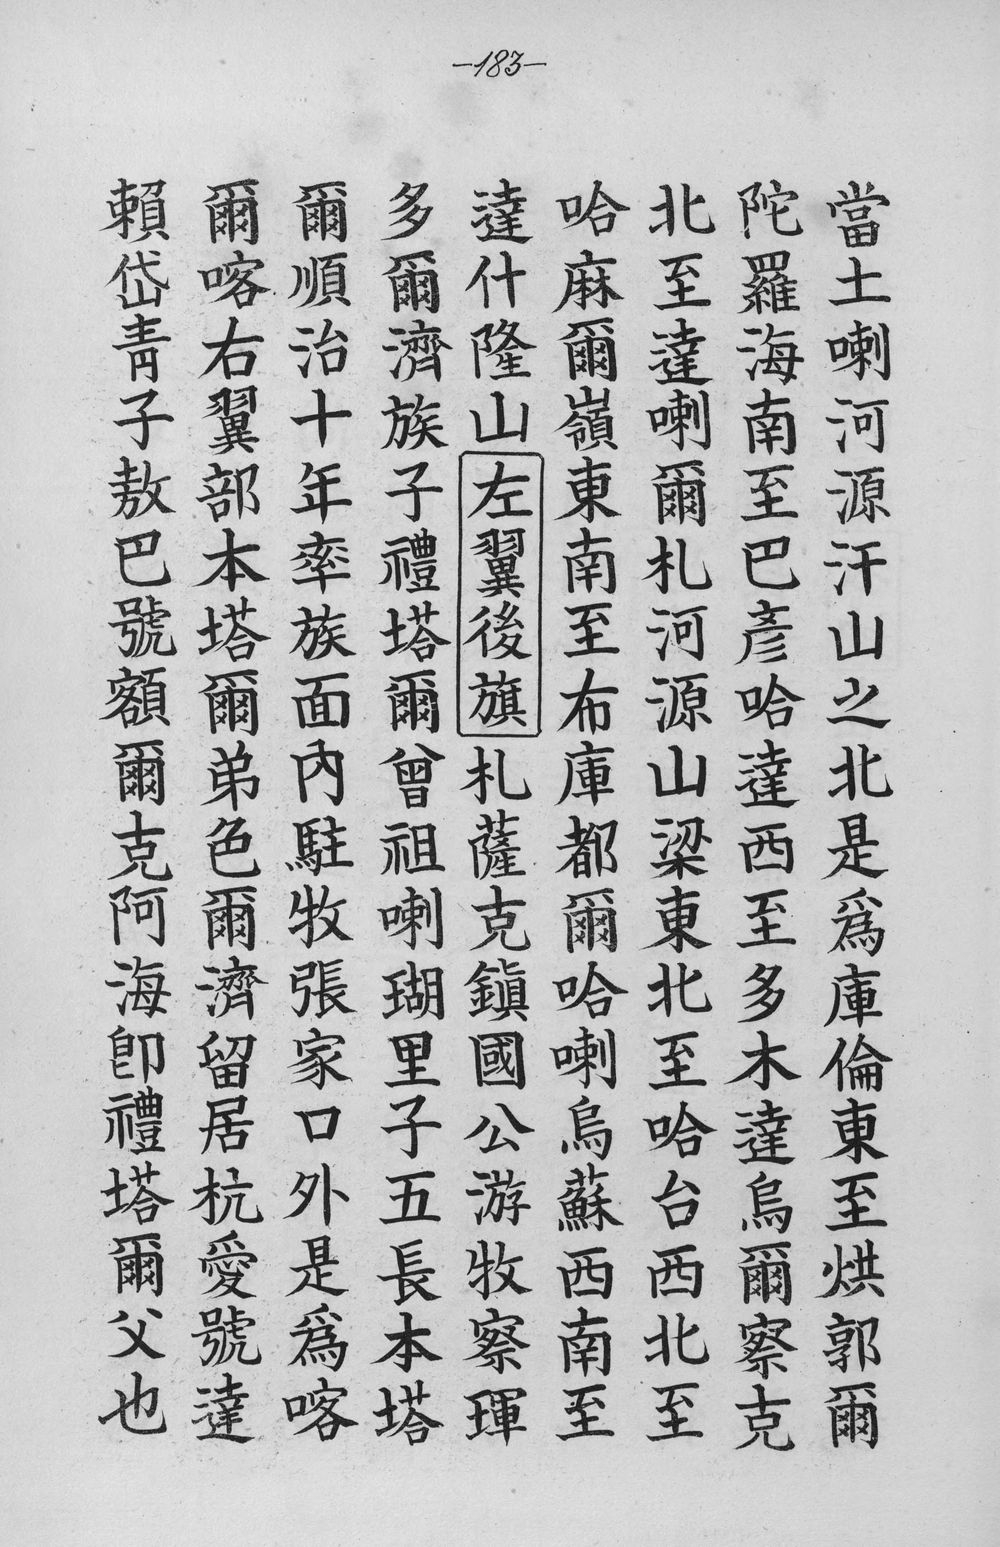 —183—
當土喇河源汗山之北是爲庫倫東至烘郭爾
陀羅海南至巴彥哈達西至多木達烏爾察克
北至達喇爾札河源山梁東北至哈台西北至
哈麻爾嶺東南至布庫都爾哈喇烏蘇西南至
達什隆山左翼後旗札薩克鎭國公游牧察琿
多爾濟族子禮塔爾曾祖喇瑚里子五長本塔
爾順治十年率族面內駐牧張家口外是爲喀
爾喀右翼部本塔爾弟色爾濟留居杭愛號達
賴岱青子敖巴號額爾克阿海卽禮塔爾父也